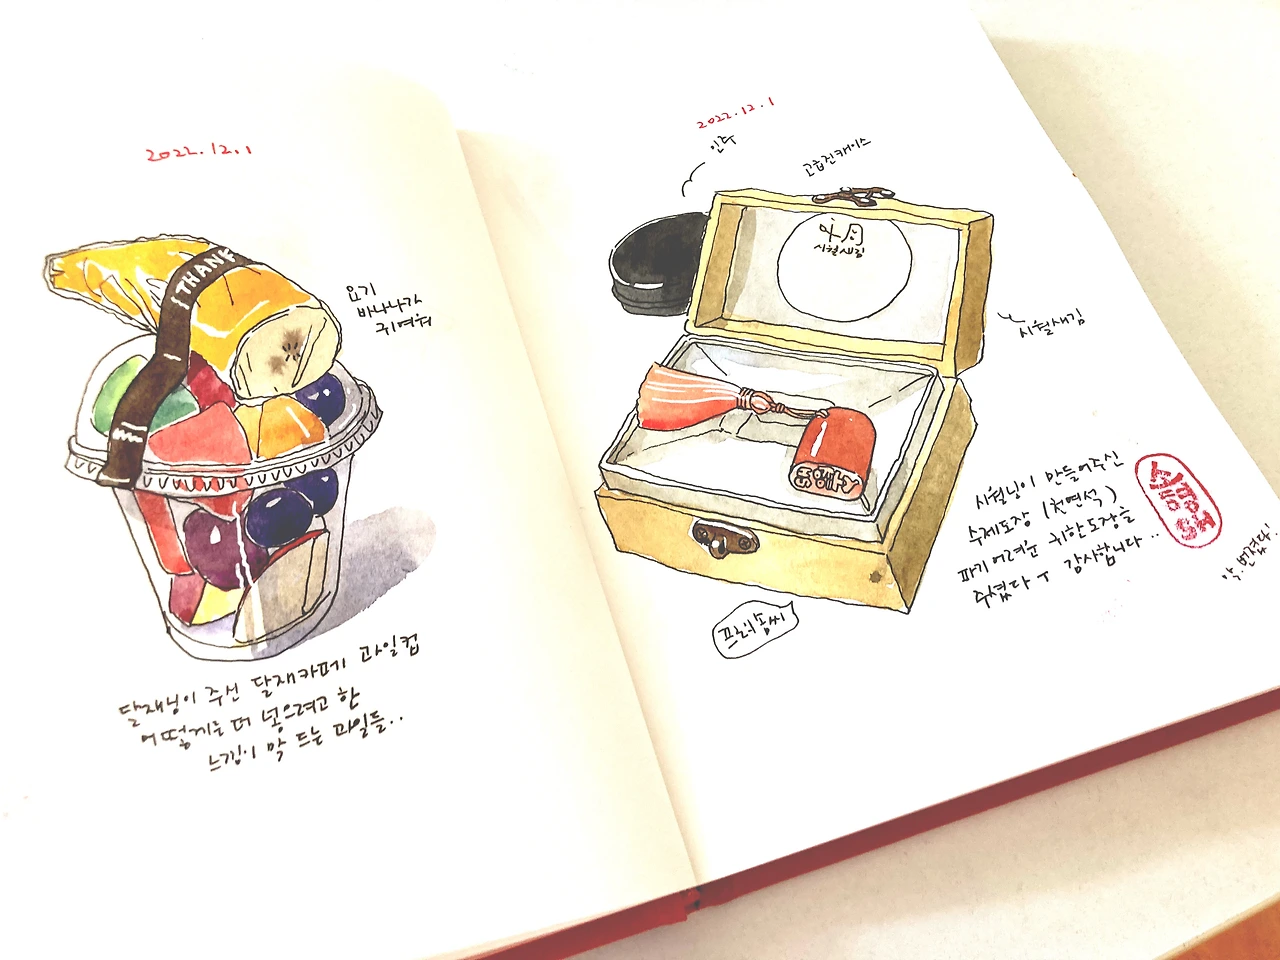 2022.12.1
THANK
요기
바나나가
귀여워
달재님이 주신 달재카페기 과일컵
어떻게든 더 넣으려고 한
느낌이 막 드는 과일들..
2022.12.1
인주
고급진케이스
시월새김
시월새김
시월님이 만들어주신
수제도장 (천연석)
파기 어려운 귀한도장을
주셨다ㅜ 감사합니다..
앗. 번졌다!